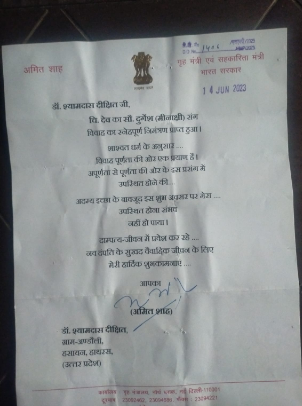 अमित शाह
गृह मंत्री एवं सहकारिता मंत्री
भारत सरकार
14 JUN 2023
डॉ. श्यामदास दीक्षित जी,
चि. देव का सौ. दुर्गेश (मीनाक्षी) संग
विवाह का स्नेहपूर्ण निमंत्रण प्राप्त हुआ।
शाश्वत धर्म के अनुसार ...
विवाह पूर्णता की ओर एक प्रयाण है।
अपूर्णता से पूर्णता की ओर के इस प्रसंग में
उपस्थित होने की ...
अदम्य इच्छा के बावजूद इस शुभ अवसर पर मेरा ...
उपस्थित होना संभव
नहीं हो पाया।
दाम्पत्य-जीवन में प्रवेश कर रहे ....
नव दंपति के सुखद वैवाहिक जीवन के लिए
मेरी हार्दिक शुभकामनाएं ...
आपका
(अमित शाह)
डॉ. श्यामदास दीक्षित,
ग्राम-अण्डौली,
हसायन, हाथरस,
(उत्तर प्रदेश)